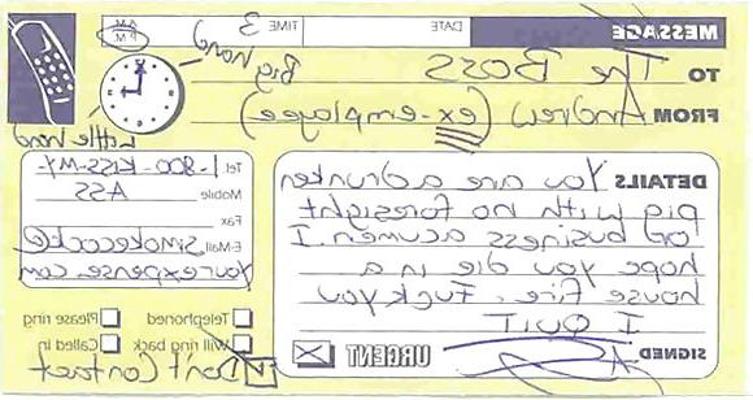 MESSAGE DATE TIME 3 A.M. P.M.
TO The BOSS Big hand
FROM Andrew (ex-employee)
Little hand
DETAILS You are a drunken
pig with no foresight
or business acumen. I
hope you die in a
house fire. Fuck you
I QUIT
SIGNED
URGENT
Tel. 1-800-KISS-MY-
Mobile ASS
Fax
E-Mail smokecock@
Yourexpense.com
Telephoned Please ring
Will ring back Called in
Don't Contact